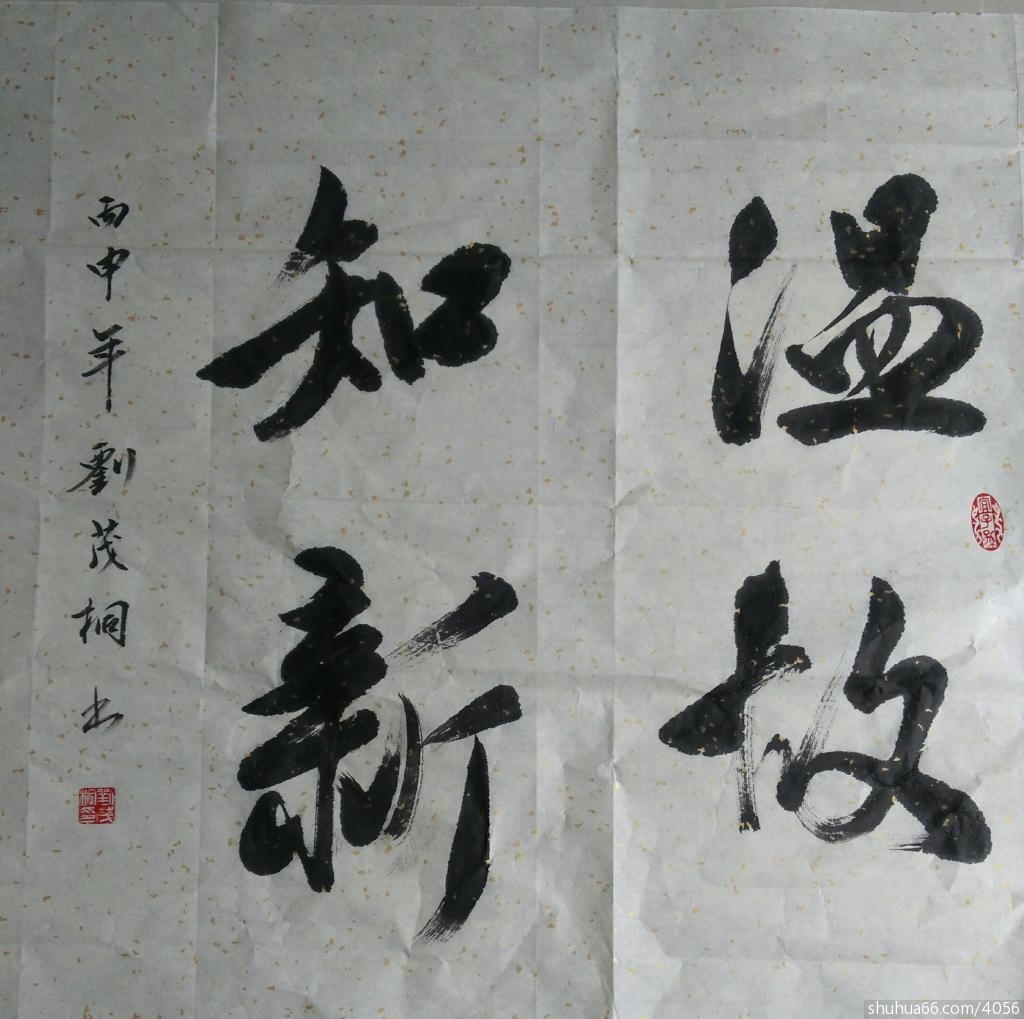 温故
知新
丙申年劉茂桐书
劉茂桐印
shuhua66.com/4056